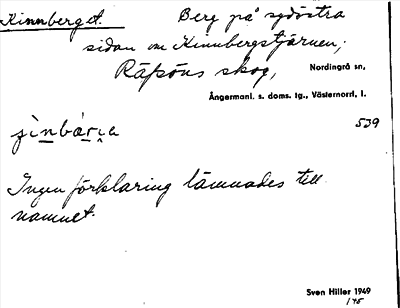 Kinnberget. Berg på sydöstra
sidan om Kinnbergstjärnen,
Räfsöns skog, Nordingrå sn,
Ångermanl. s. doms. tg., Västernorrl. l.
539
Ingen förklaring lämnades till
namnet.
Sven Hiller 1949